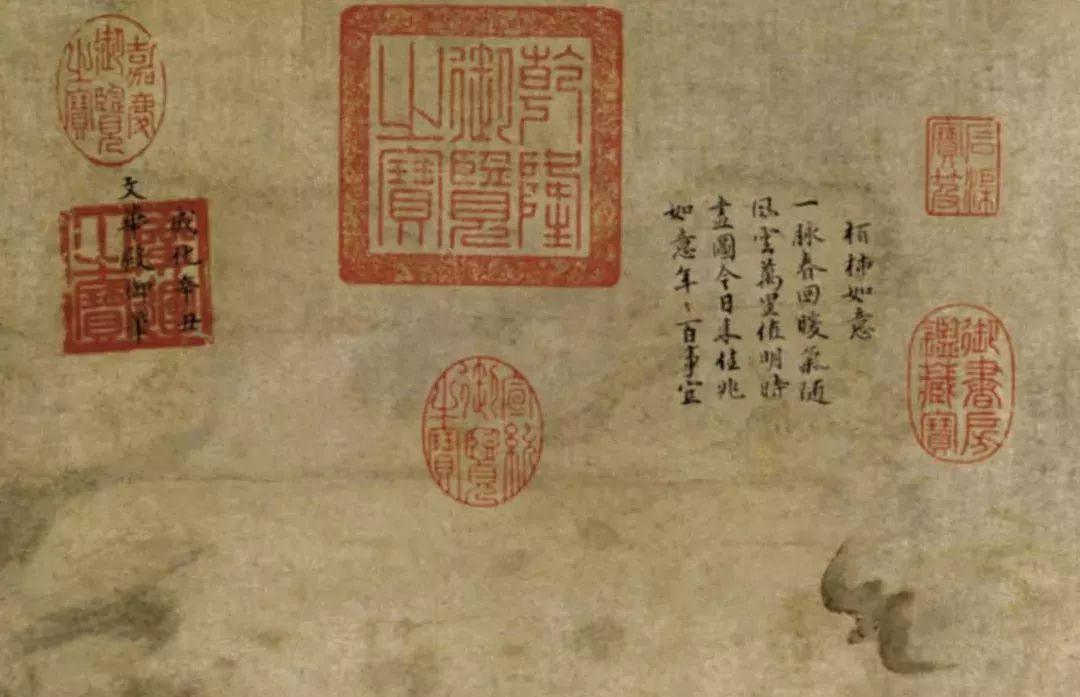 石渠寶笈
御書房鑑藏寶
柏柿如意
一脉春回暖氣随
風雲萬里值明時
畫圖今日来佳兆
如意年〻百事宜
乾隆御覽之寶
宣統御覽之寶
嘉慶御覽之寶
成化辛丑
文華殿御筆
廣運之寶